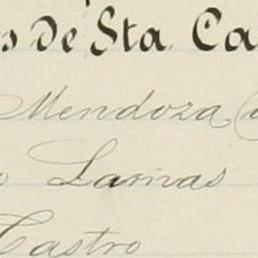 s de Sta. Ca
Mendoza
o Lamas
Castro